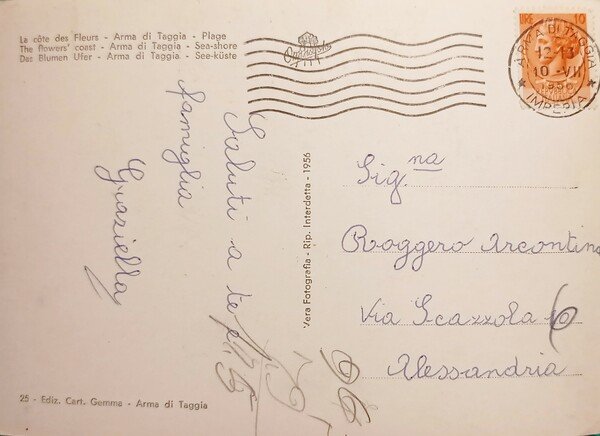 La côte des Fleurs - Arma di Taggia - Plage
The flowers' coast - Arma di Taggia - Sea-shore
Das Blumen Ufer - Arma di Taggia - See-küste
LIRE 10
ARMA DI TAGGIA
12-13
10-VII
1956
IMPERIA
Saluti a te e
famiglia
Graziella
Vera Fotografia - Rip. Interdetta - 1956
Sig.na
Roggero Arcontina
Via Scazzola
Alessandria
25 - Ediz. Cart. Gemma - Arma di Taggia